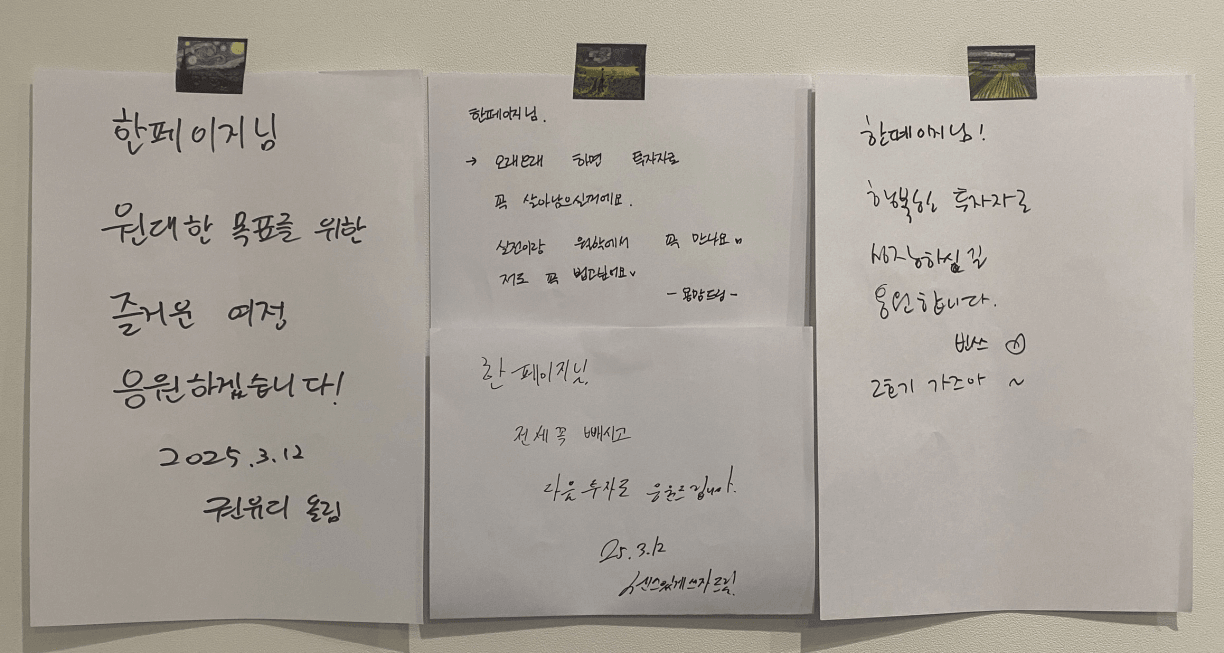 한페이지님
원대한 목표를 위한
즐거운 여정
응원하겠습니다!
2025.3.12
권유디 올림
한페이지님.
→ 오래오래 하면 투자자로
꼭 살아남으실거에요.
실전이랑 월학에서 꼭 만나요
저도 꼭
한페이지님.
전세 꼭 빼시고
다음 투자로 응원드립니다.
25.3.12
센스있게쓰자 드림.
한페이지님!
행복한 투자자로
성장하실 길
응원합니다.
빈쓰
가즈아 ~